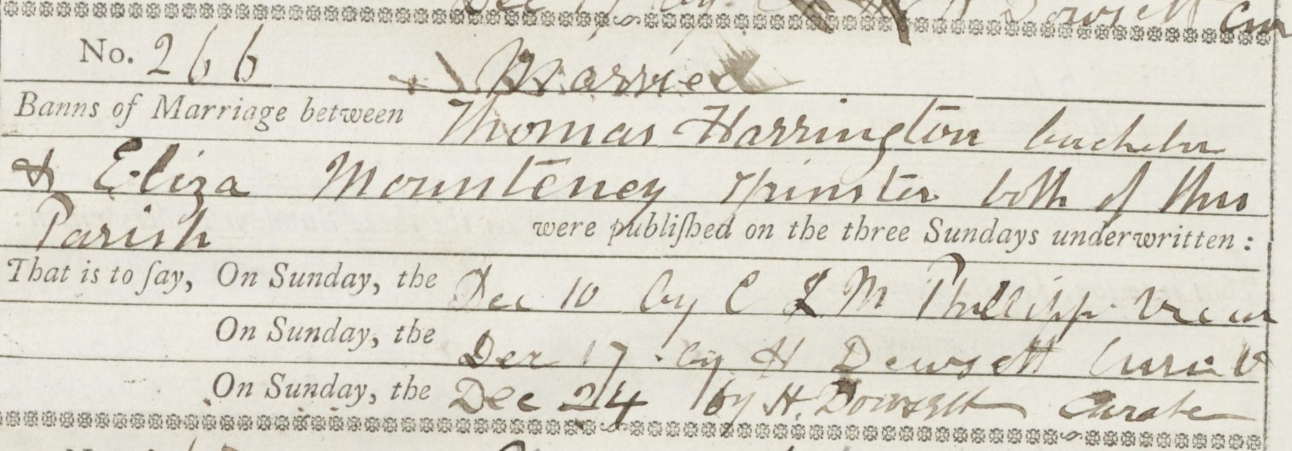 Dec 17 by H Dowsett Cur
No. 266 Married
Banns of Marriage between Thomas Harrington bachelor
& Eliza Mounteney spinster both of this
Parish were publiſhed on the three Sundays underwritten:
That is to ſay, On Sunday, the Dec 10 by C L M Phillipps Vicar
On Sunday, the Dec 17 by H Dowsett Curate
On Sunday, the Dec 24 by H. Dowsett Curate